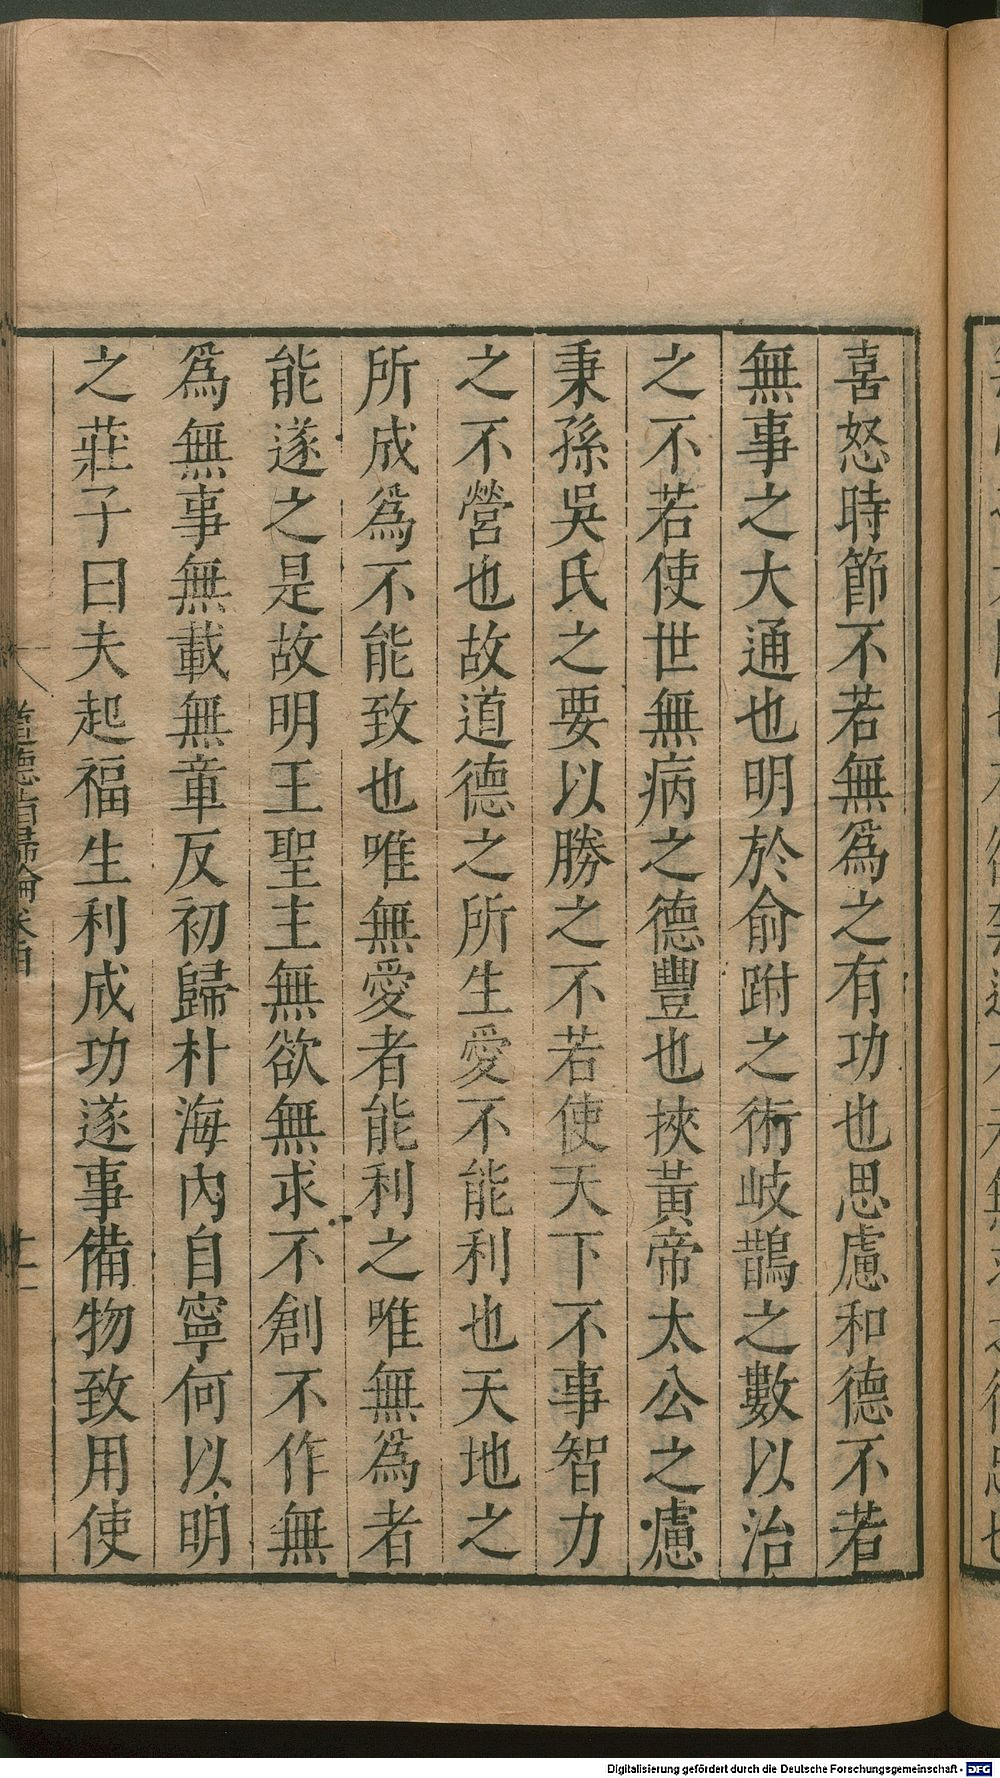 喜怒時節不若無爲之有功也思慮和德不若
無事之大通也明於俞跗之術岐鵲之數以治
之不若使世無病之德豐也挾黃帝太公之慮
秉孫吳氏之要以勝之不若使天下不事智力
之不營也故道德之所生愛不能利也天地之
所成爲不能致也唯無愛者能利之唯無爲者
能遂之是故明王聖主無欲無求不創不作無
爲無事無載無章反初歸朴海內自寧何以明
之莊子曰夫起福生利成功遂事備物致用使
道德指歸論
Digitalisierung gefördert durch die Deutsche Forschungsgemeinschaft - DFG